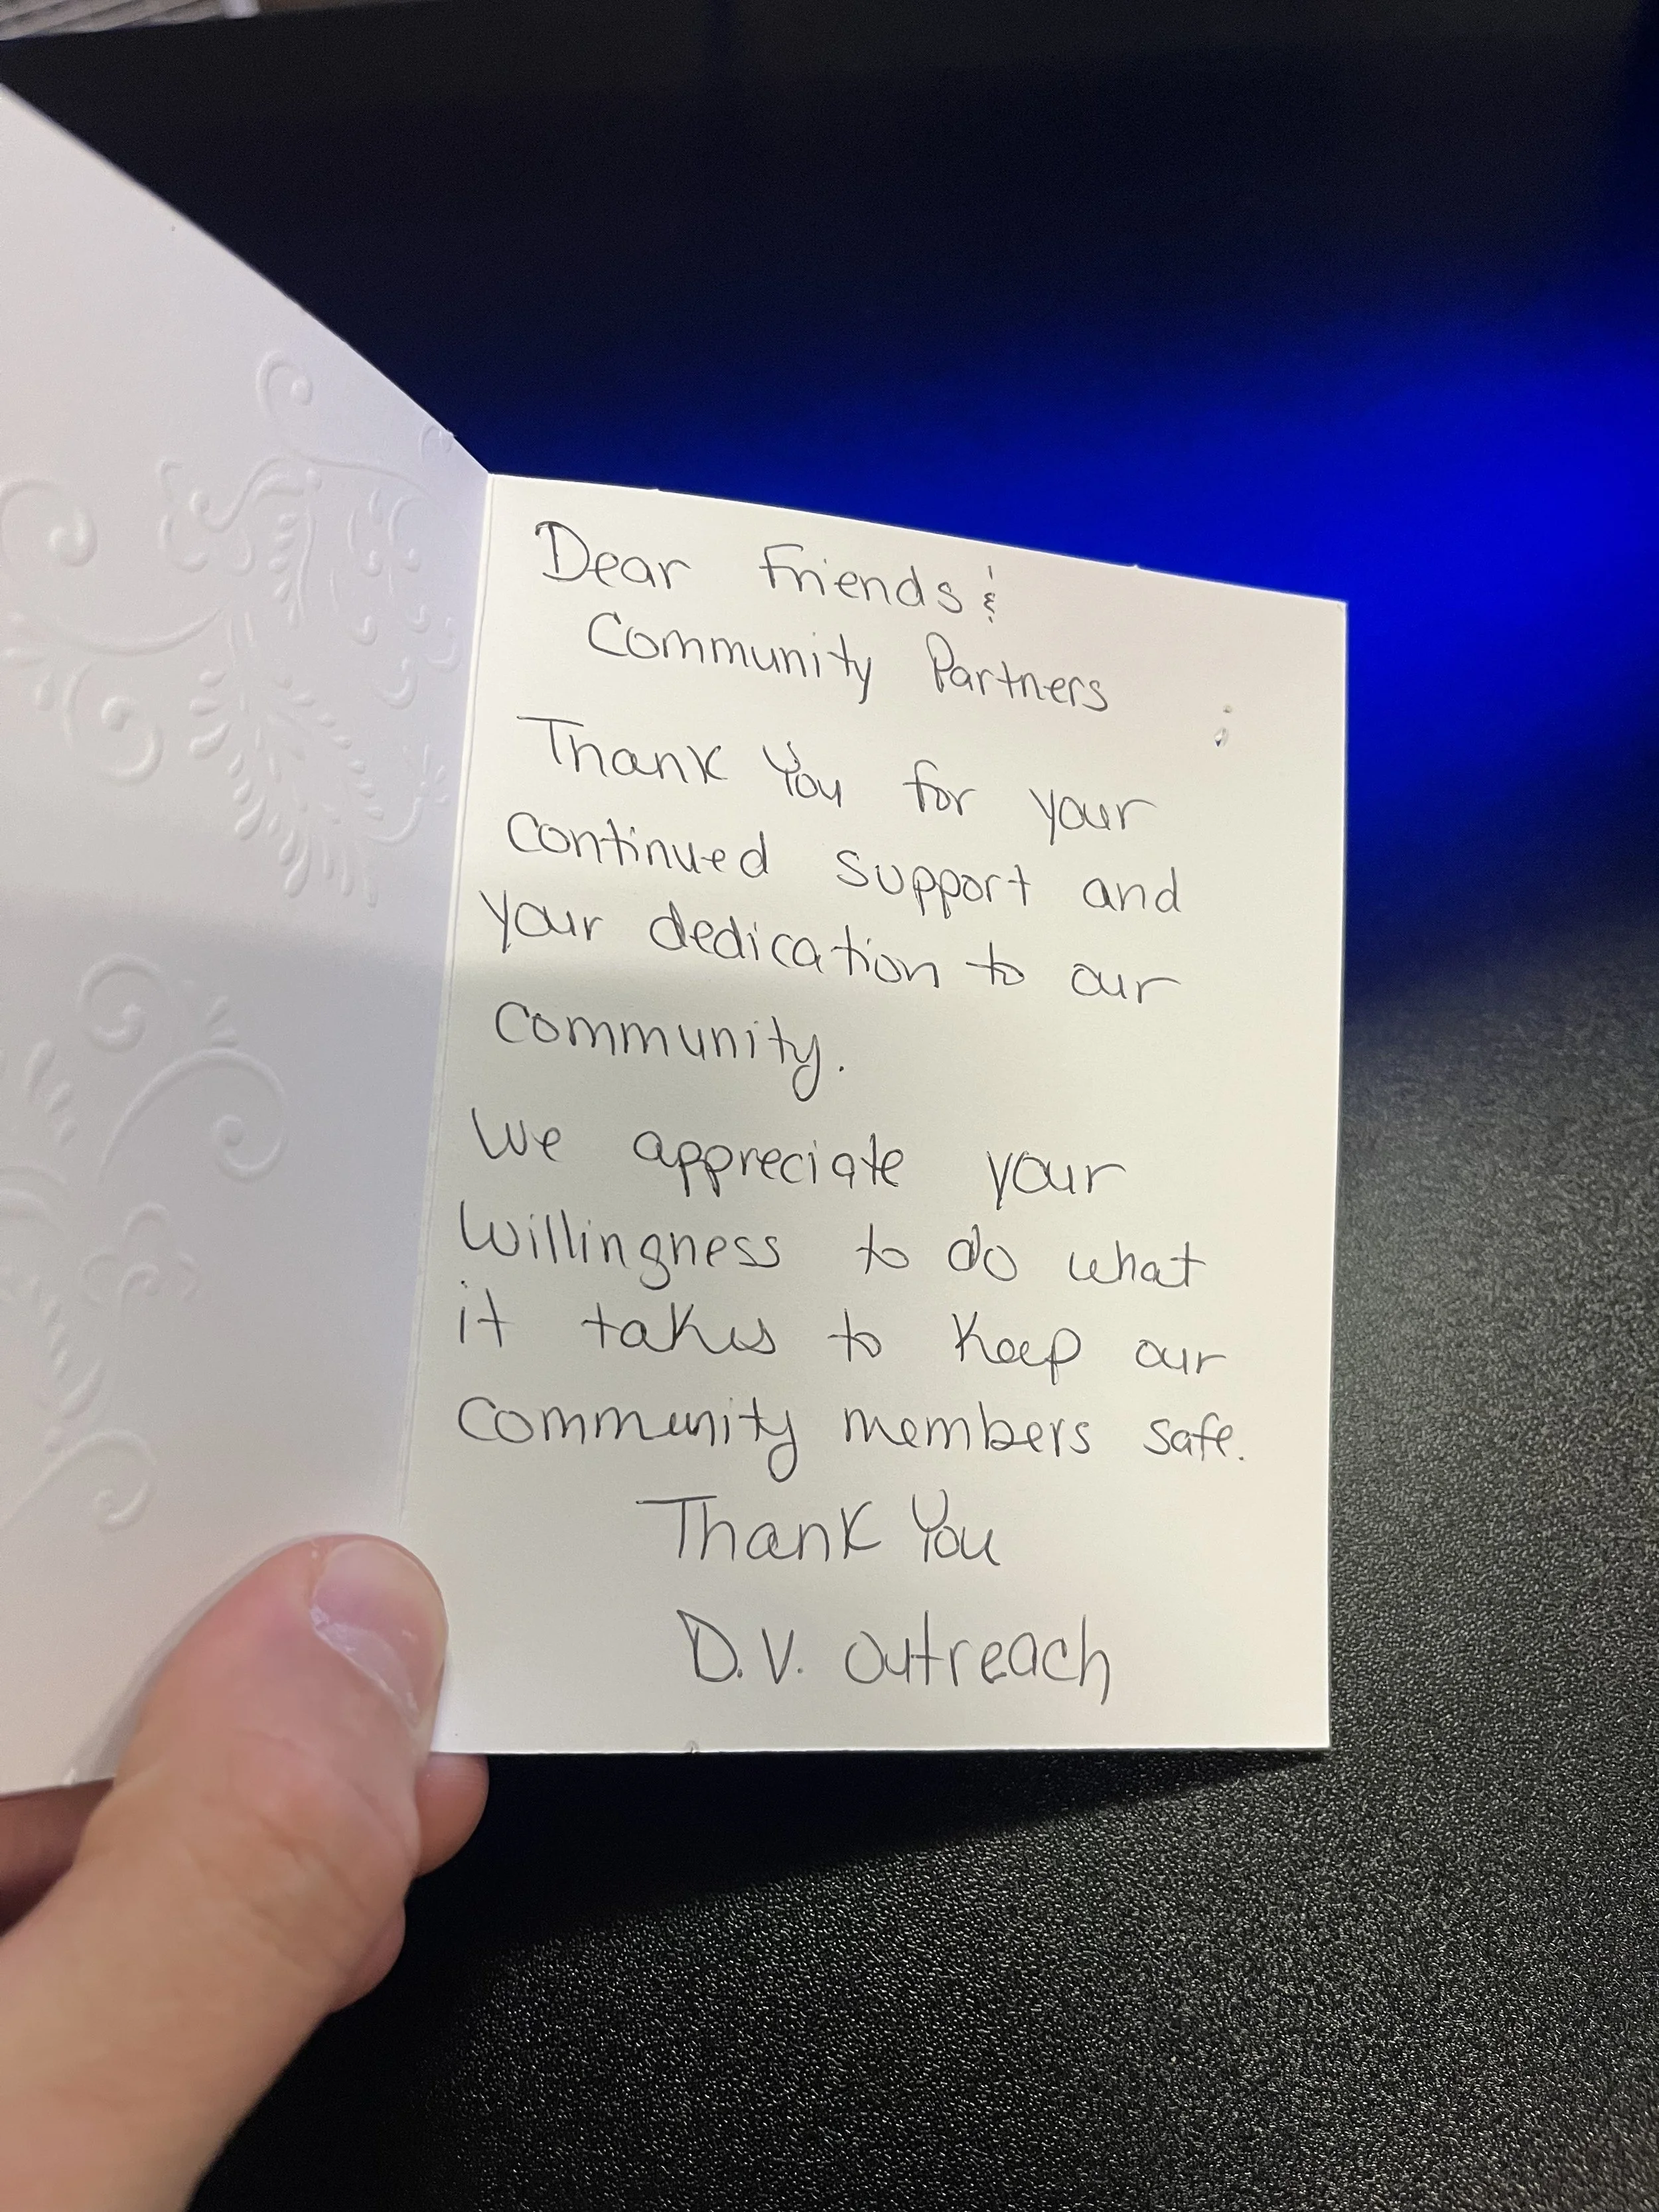 Dear Friends &
Community Partners
Thank You for your
continued support and
your dedication to our
community.
We appreciate your
willingness to do what
it takes to keep our
community members safe.
Thank You
D.V. Outreach